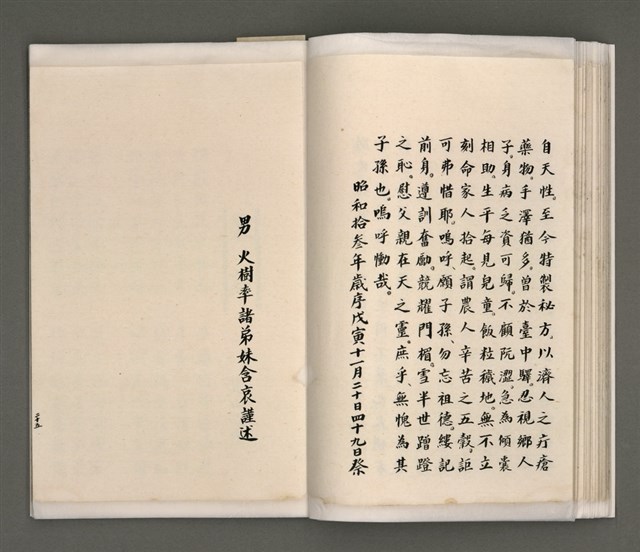 自天性。至今特製秘方。以濟人之疔瘡
藥物。手澤猶多。曾於臺中驛。忍視鄉人
子。身病之資可歸。不顧阮澀。急為傾囊
相助。生平每見兒童。飯粒穢地。無不立
刻命家人拾起。謂農人辛苦之五穀。詎
可弗惜耶。嗚呼、願子孫、勿忘祖德。縷記
前身。遵訓奮勵。競耀門楣。雪半世蹭蹬
之恥。慰父親在天之靈。庶乎、無愧為其
子孫也。嗚呼慟哉。
昭和拾叁年歲序戊寅十一月二十日四十九日祭
男 火樹率諸弟妹含哀謹述
二十五